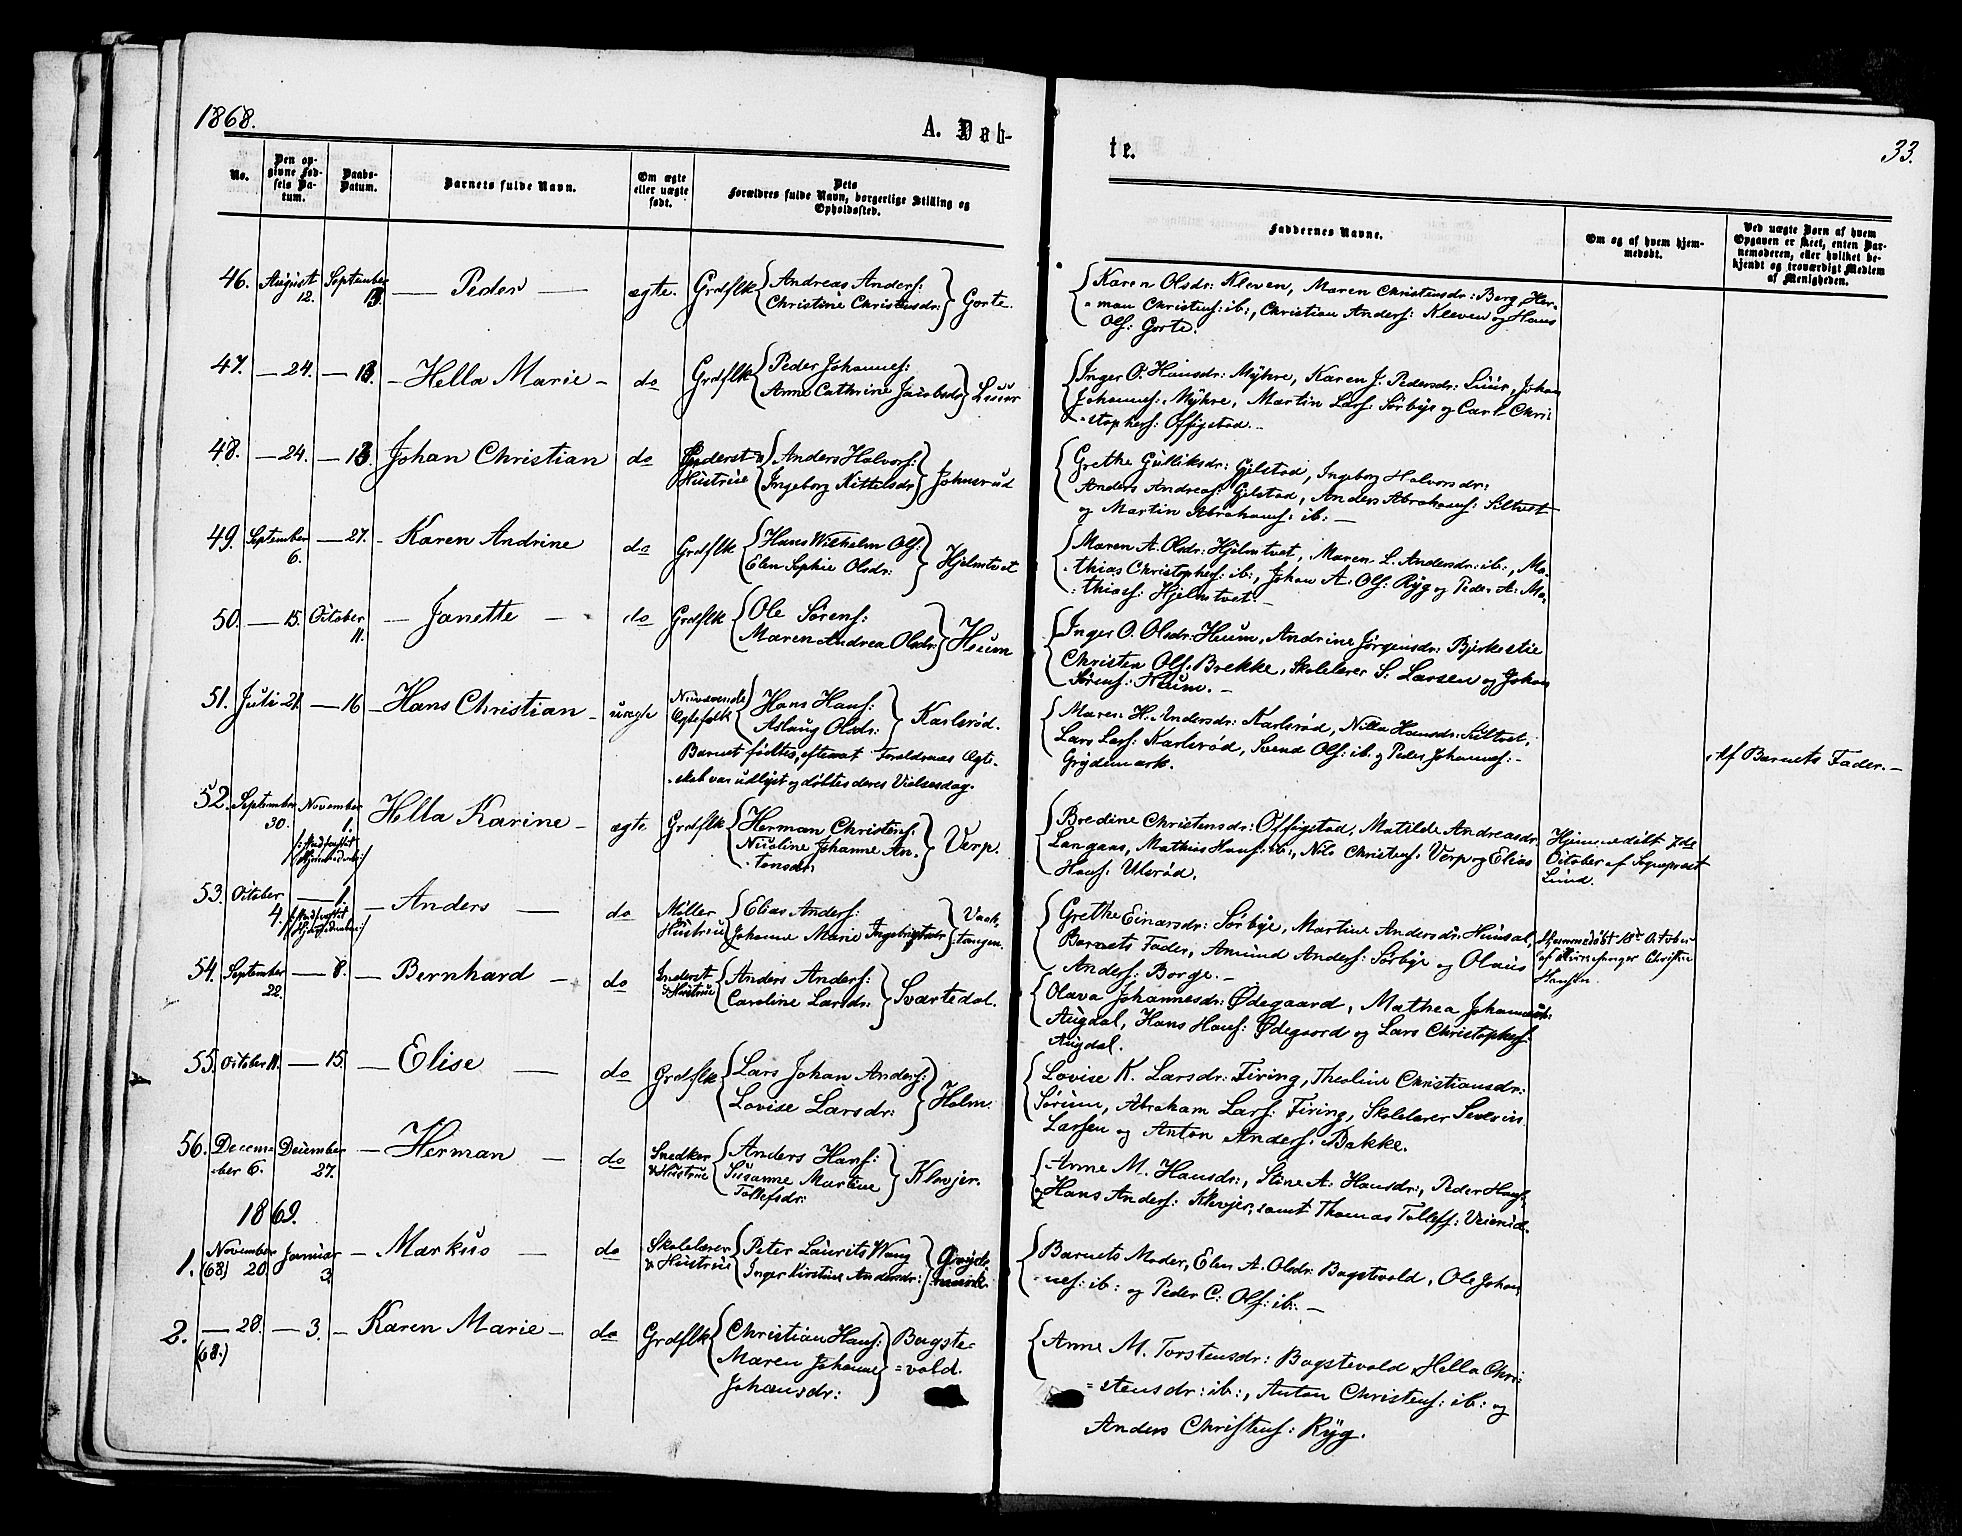 1868.
A. Døb-
te.
33.
No.
Den op-
givne Fød-
sels Da-
tum.
Daabs-
Datum.
Barnets fulde Navn.
Om ægte
eller uægte
født.
Dets
Forældres fulde Navn, borgerlige Stilling og
Opholdssted.
Faddernes Navne.
Om og af hvem hjem-
medøbt.
Ved uægte Børn af hvem
Opgaven er skeet, enten Bar-
nemoderen, eller hvilket be-
kjendt og troværdigt Medlem
af Menigheden.
46. August 12. September 13. — Peder — ægte. Grdflk Andreas Anders: Gorte.
Christine Christensdr:
Karen Olsdr: Kleven, Maren Christensdr: Berg, Her-
=man Christens: ib:, Christian Anders: Kleven og Hans
Ols: Gorte.
47. — 24. — 13. — Hella Marie — do Grdflk Peder Johannes:
Anne Cathrine Jacobsdr
Inger O. Hansdr: Myhre, Karen J. Pedersdr: Johan
Johannes: Myhre, Martin Lars: Sørbye og Carl Chri-
=stophers: Offigstad. —
48. — 24. — 13. Johan Christian do Inderst & Hustrue Anders Halvors:
Ingeborg Kittelsdr Johnsrud
Grethe Gulliksdr: Gjelstad, Ingeborg Halvorsdr:
Anders Andreas: Gjelstad, Anders Abrahams: Siltvet
og Martin Abrahams: ib: —
49. September 6. — 27. - Karen Andrine do Grdflk Hans Wilhelm Ols:
Elen Sophie Olsdr: Hjelmtvet
Maren A. Olsdr: Hjelmtvet, Maren L. Andersdr: ib:, Ma-
thias Christophers: ib:, Johan A: Ols: Ryg og Peder A: Ma-
thias: Hjelmtvet. —
50. — 15. October 11. — Janette — do Grdflk Ole Sørens:
Maren Andrea Olsdr: Heum
Inger O. Olsdr: Heum, Andrine Jørgensdr: Bjerkestie
Christen Ols: Brekke, Skolelærer S. Larsen og Johan
Sørens: Heum. —
51. Juli 21. — 16 — Hans Christian — uægte Nuværende Egtefolk Hans Hans:
Aslaug Olsdr: Karlsrød.
Barnet fødtes, efterat Forældrenes Ægte-
-skab var udlyst og døbtes deres Vielsesdag.
Maren H. Andersdr: Karlsrød, Nilla Hansdr: Siltvet,
Lars Lars: Karlsrød, Svend Ols: ib: og Peder Johannes: -
Grydemark.
Af Barnets Fader. —
52. September 30. November 1. Hella Karine — ægte Grdflk Herman Christens:
Nicoline Johanne An-
tonsdr: Verp.
Bredine Christensdr: Offigstad, Matilde Andreasdr
Langaas, Mathias Hans: ib:, Nils Christens: Verp og Elias
Hans: Ulsrød.
Hjemmedøbt 7de
October af Sogneprest
Lund.
53. October 4. — 1. — Anders — do Møller & Hustrue Elias Anders:
Johanne Marie Ingebrigtsdr
Grethe Einarsdr: Sørbye, Martine Andersdr:
Barnets Fader, Amund Anders: Sørbye og Olaus
Anders: Borge. —
Hjemmedøbt 18de October
af Kirkesanger Christen
Hansen.
54. September 22. — 8. — Bernhard — do Inderst & Hustrue Anders Anders:
Caroline Larsdr: Svartedal.
Olava Johannesdr: Ødegaard, Mathea Johannesdr:
Augdal, Hans Hans: Ødegaard og Lars Christophers:
Augdal.
55. October 11. — 15. — Elise — do Grdflk Lars Johan Anders:
Lovise Larsdr: Holm.
Lovise K. Larsdr: Firing, Theoline Christiansdr:
Sørum, Abraham Lars: Firing, Skolelærer Severin
Larsen og Anton Anders: Bakke.
56. Decem-
ber 6. December 27. — Herman — do Snedker & Hustrue Anders Hans:
Susanne Martine
Tollefsdr: Klevjer.
Anne M. Hansdr:, Stine A. Hansdr:, Peder Hans:
& Hans Anders: Klevjer, samt Thomas Tollefs:
1869.
1. November (68) 20 Januar 3. — Markus — do Skolelærer & Hustrue Peter Laurits Wang
Inger Kirstine Andersdr: Gryde-
mark.
Barnets Moder, Elen A. Olsdr: Bagstevold, Ole Johan-
nes: ib: og Peder C: Ols: ib: —
2. — 28. (68.) — 3. — Karen Marie — do Grdflk Christian Hans:
Maren Johanne
Johansdr: Bagste-
=vold.
Anne M. Torstensdr: Bagstevold, Hella Chri-
=stensdr: ib:, Anton Christens: ib: og
Anders Christens: Ryg.